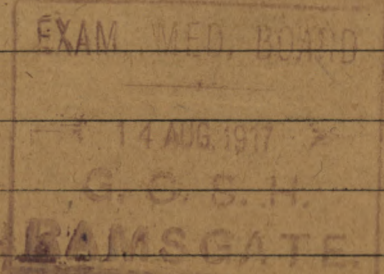 EXAM. MED. BOARD
14 AUG. 1917
G. C. S. H.
RAMSGATE.